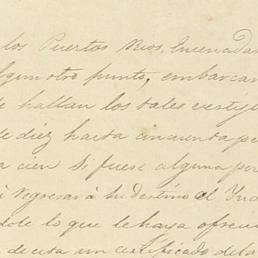 los Puertos Rios, Encenadas
algun otro punto, embarcan
se hallan los tales vestiji
de diez hasta cincuenta pe
a cien si fuese alguna per
à regresar à su destino el Ind
dole lo que le haya ofreci
de esta un certificado de la